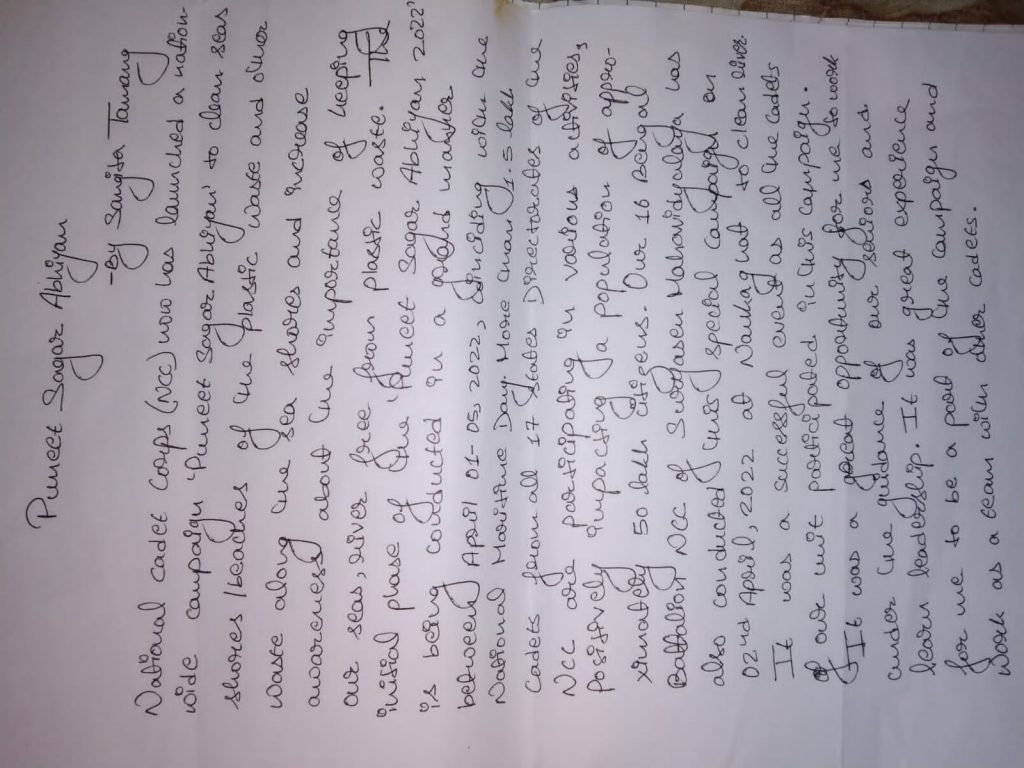 Puneet Sagar Abhiyan
-By Sangita Tamang
National Cadet Corps (NCC) now has launched a nation-
wide campaign 'Puneet Sagar Abhiyan' to clean seas
shores/beaches of the plastic waste and other
waste along the sea shores and increase
awareness about the importance of keeping
our seas, river free from plastic waste. The
initial phase of the 'Puneet Sagar Abhiyan 2022'
is being conducted in a grand manner
between April 01-05, 2022, coinciding with the
National Maritime Day. More than 1.5 lakh
Cadets from all 17 States Directorates of the
NCC are participating in various activities,
positively impacting a population of appro-
ximately 50 lakh citizens. Our 16 Bengal
Battalion NCC of Mahavidyalaya has
also conducted this special campaign on
02nd April, 2022 at to clean river
It was a successful event as all the cadets
of our unit participated in this campaign.
It was a great opportunity for me to work
under the guidance of our seniors and
learn leadership. It was great experience
for me to be a part of the campaign and
work as a team with other cadets.